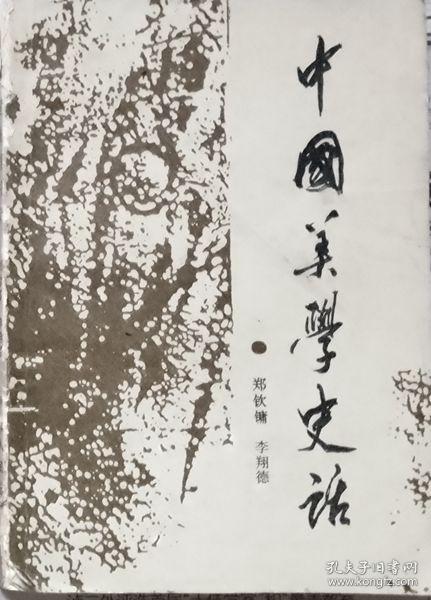 中國美學史话
郑钦镛 李翔德
孔夫子旧书网
www.kongfz.com